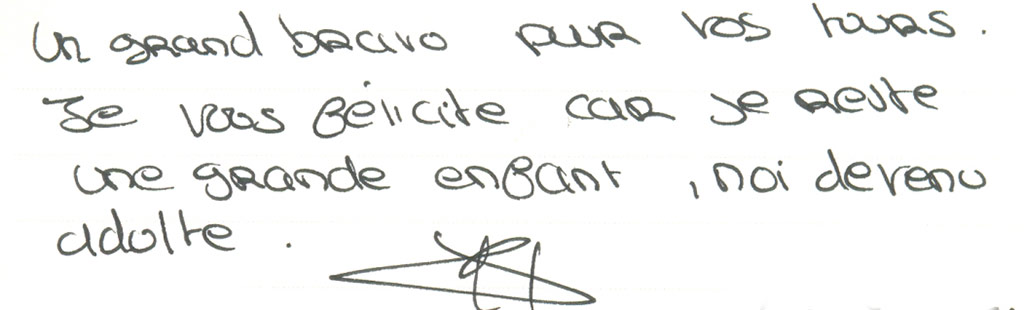 Un grand bravo pour vos tours.
Je vous félicite car je reste
une grande enfant, moi devenu
adolte.